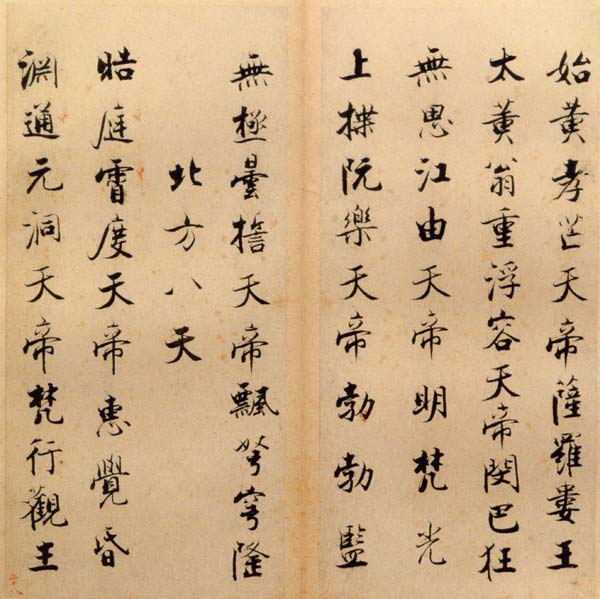 始黃孝芒天帝薩羅婁王
太黃翁重浮容天帝閔巴狂
無思江由天帝明梵光
上揲阮樂天帝勃勃監
無極曇誓天帝飄弩穹隆
北方八天
皓庭霄度天帝惠覺昏
淵通元洞天帝梵行觀生